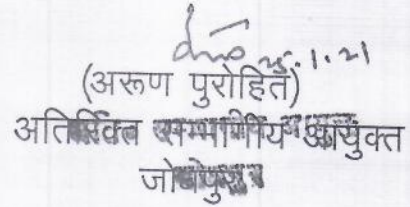 25.1.21
(अरूण पुरोहित)
अतिरिक्त सम्भागीय आयुक्त
जोधपुर